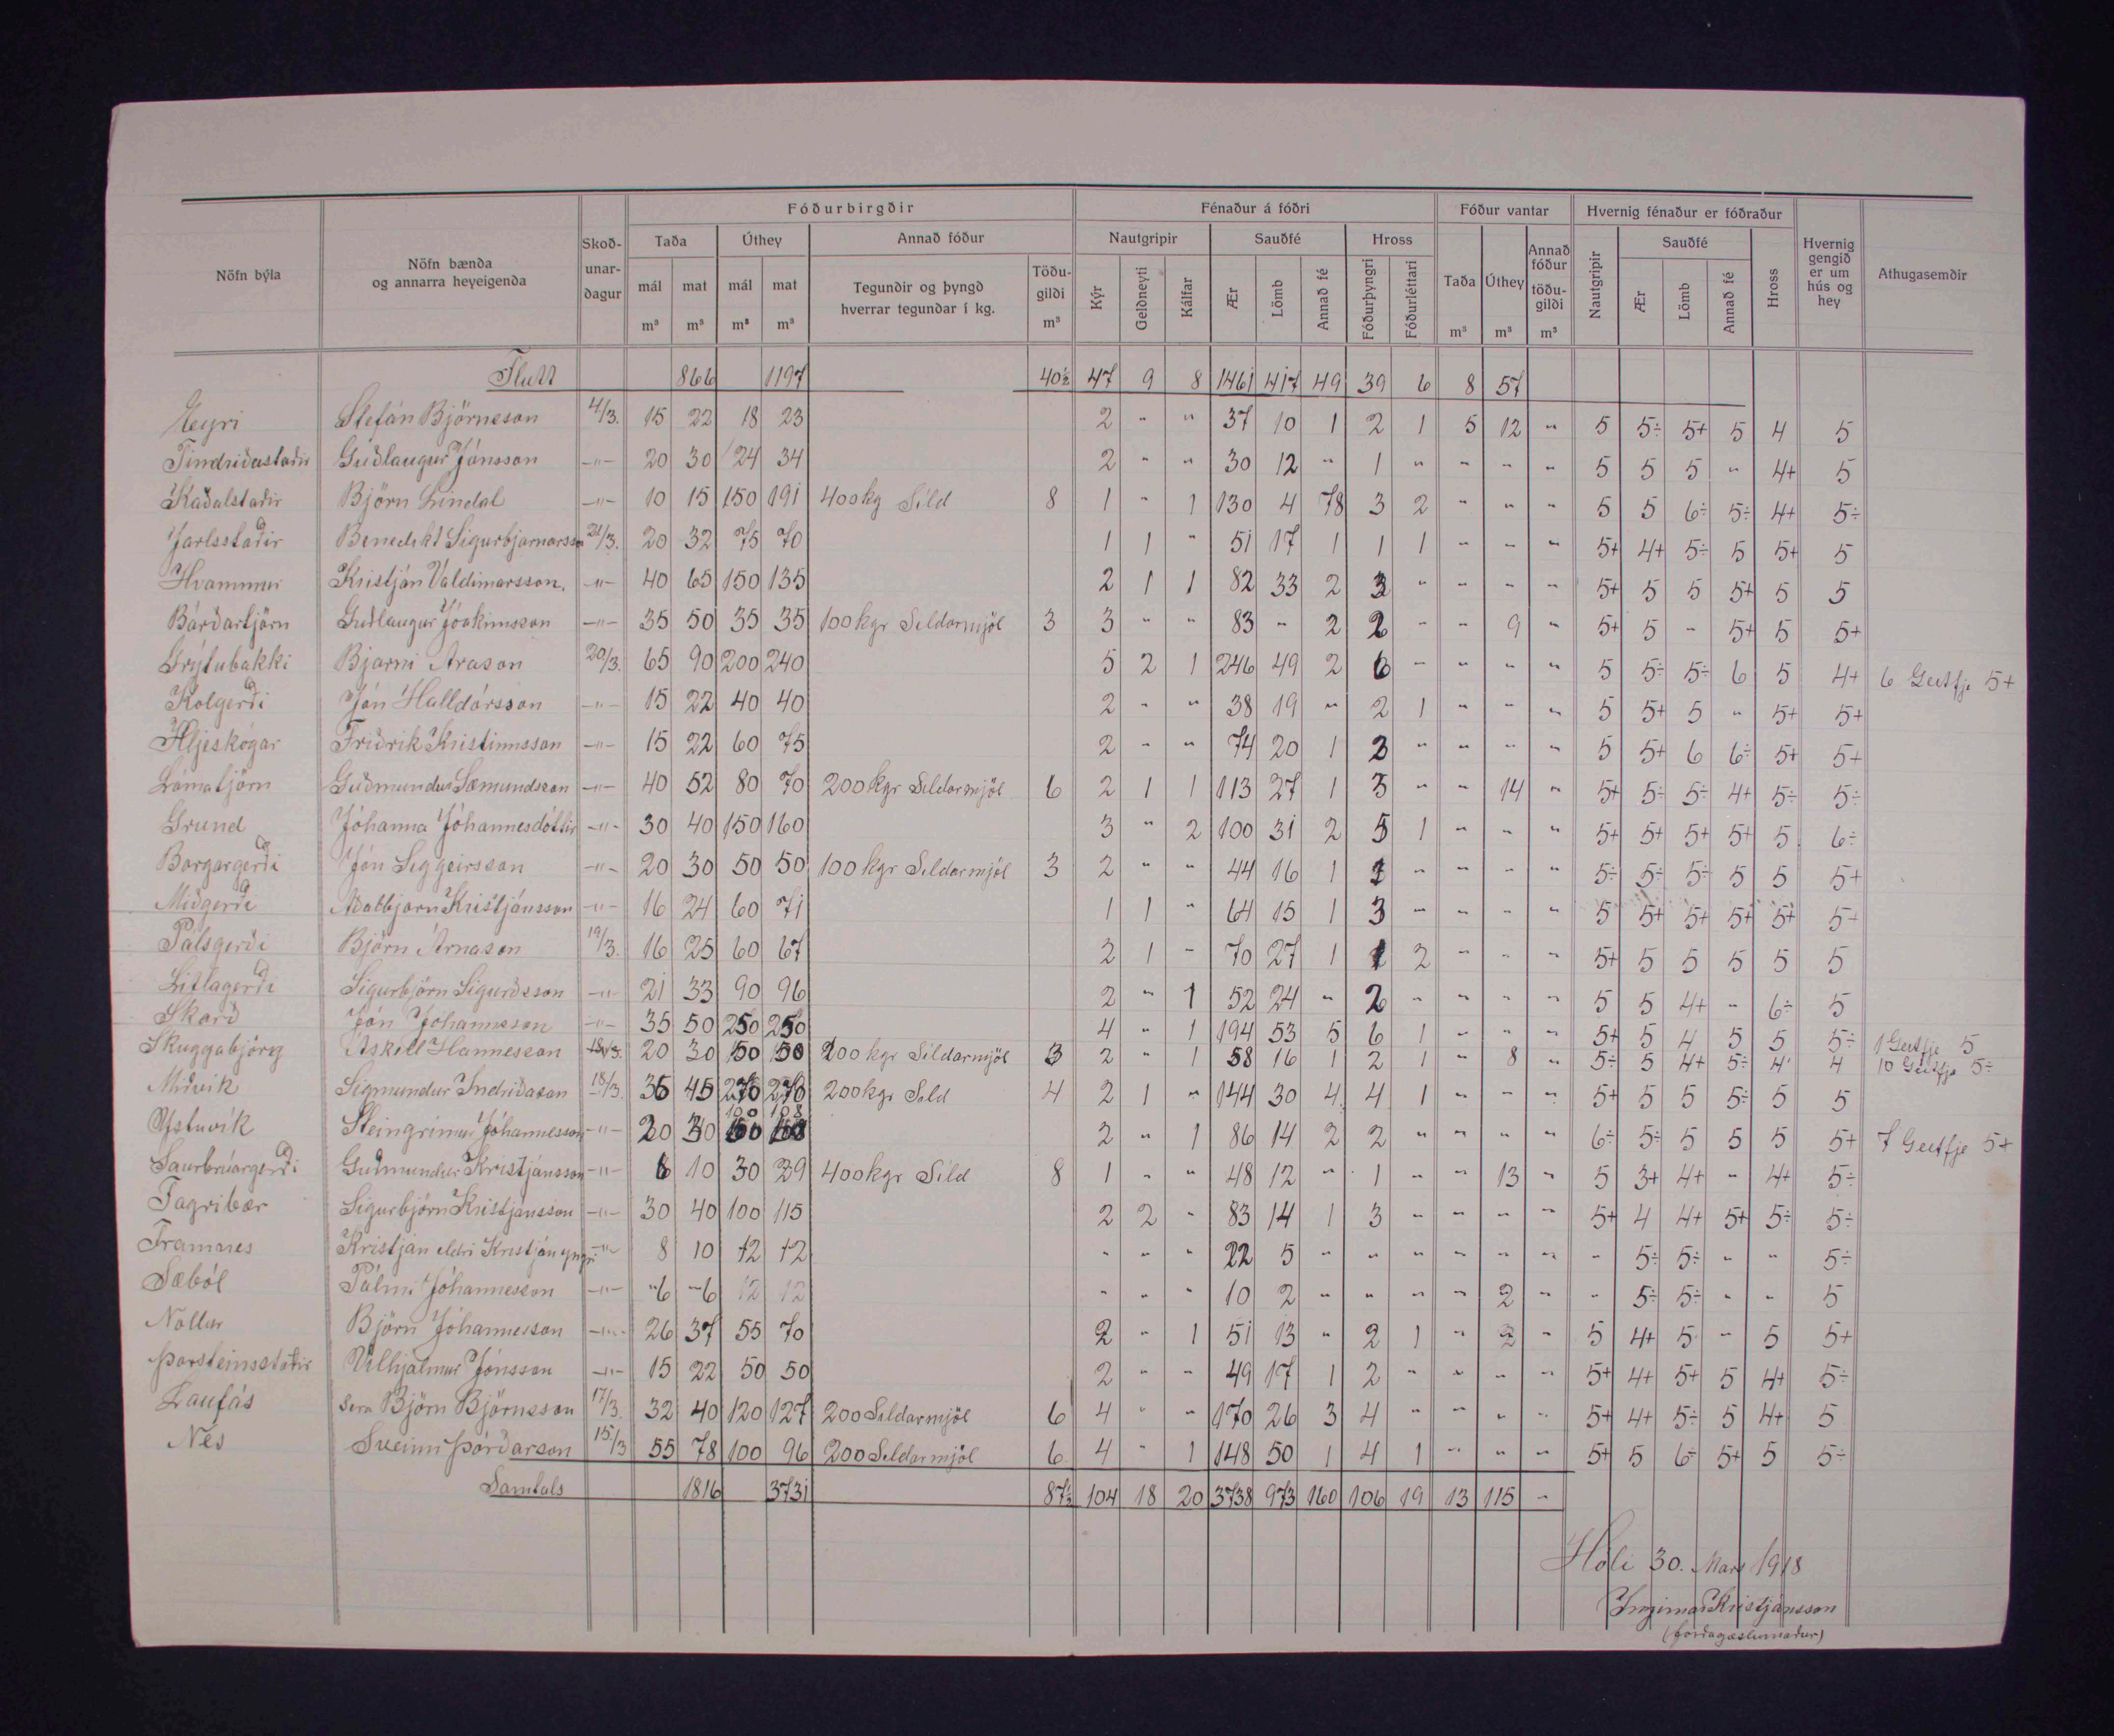 Fóðurbirgðir Fénaður á fóðri Fóður vantar Hvernig fénaður er fóðraður
Nöfn býla Nöfn bænda og annarra heyeigenda Skoð-unar-dagur Taða Úthey Annað fóður Nautgripir Sauðfé Hross Taða Úthey Annað fóður töðu-gildi Nautgripir Sauðfé Hross Hvernig gengið er um hús og hey Athugasemdir
mál mat mál mat Tegundir og þyngd hverrar tegundar í kg. Töðu-gildi Kýr Geldneyti Kálfar Ær Lömb Annað fé Fóðurþyngri Fóðurléttari Ær Lömb Annað fé
m³ m³ m³ m³ m³ m³ m³ m³
Flutt 866 1197 40½ 47 9 8 1461 417 49 39 6 8 57
Stefán Björnsson 4/3. 15 22 18 23 2 " " 37 10 1 2 1 5 12 " 5 5÷ 5+ 5 4 5
Tindriðastaðir Guðlaugur Jónsson —"— 20 30 24 34 2 " " 30 12 " 1 " " " " 5 5 5 " 4+ 5
Kaðalstaðir Björn Líndal —"— 10 15 150 191 400 kg Síld 8 1 " 1 130 4 78 3 2 " " " 5 5 6÷ 5÷ 4+ 5÷
Jarlsstaðir Benedikt Sigurbjarnarsson 21/3. 20 32 75 70 1 1 " 51 17 1 1 1 " " " 5+ 4+ 5÷ 5 5+ 5
Hvammur Kristján Valdimarsson. —"— 40 65 150 135 2 1 1 82 33 2 3 " " " " 5+ 5 5 5+ 5 5
Bárðartjörn Guðlaugur Jóakimsson —"— 35 50 35 35 100 kgr Síldarmjöl 3 3 " " 83 " 2 2 " " 9 " 5+ 5 " 5+ 5 5+
Grýtubakki Bjarni Arason 20/3. 65 90 200 240 5 2 1 246 49 2 6 " " " " 5 5÷ 5÷ 6 5 4+ 6 Geitfje 5+
Kolgerði Jón Halldórsson —"— 15 22 40 40 2 " " 38 19 " 2 1 " " " 5 5+ 5 " 5+ 5+
Hljeskógar Friðrik Kristinnsson —"— 15 22 60 75 2 " " 74 20 1 3 " " " " 5 5+ 6 6÷ 5+ 5+
Lómatjörn Guðmundur Sæmundsson —"— 40 52 80 70 200 kgr Síldarmjöl 6 2 1 1 113 27 1 3 " " 14 " 5+ 5÷ 5÷ 4+ 5÷ 5÷
Grund Jóhanna Jóhannesdóttir —"— 30 40 150 160 3 " 2 100 31 2 5 1 " " " 5+ 5+ 5+ 5+ 5 6÷
Borgargerði Jón Siggeirsson —"— 20 30 50 50 100 kgr Síldarmjöl 3 2 " " 44 16 1 1 " " " " 5÷ 5÷ 5÷ 5 5 5+
Miðgerði Aðalbjörn Kristjánsson —"— 16 24 60 71 1 1 " 64 15 1 3 " " " " 5 5+ 5+ 5+ 5+ 5+
Pálsgerði Björn Árnason 19/3. 16 25 60 67 2 1 - 70 27 1 1 2 " " " 5+ 5 5 5 5 5
Litlagerði Sigurbjörn Sigurðsson —"— 21 33 90 96 2 " 1 52 24 " 2 " " " " 5 5 4+ " 6÷ 5
Skarð Jón Jóhannsson —"— 35 50 250 250 4 " 1 194 53 5 6 1 " " " 5+ 5 4 5 5 5÷ 1 Geitfje 5
Skuggabjörg Áskell Hannesson 18/3. 20 30 50 50 200 kgr Síldarmjöl 3 2 " 1 58 16 1 2 1 " 8 " 5÷ 5 4+ 5÷ 4 4 10 Geitfje 5÷
Miðvik Sigmundur Indriðason 18/3. 36 45 270 270 200 kgr Síld 4 2 1 " 144 30 4 4 1 " " " 5+ 5 5 5÷ 5 5
Ystuvík Steingrímur Jóhannesson —"— 20 30 100 108 2 " 1 86 14 2 2 " " " " 6÷ 5÷ 5 5 5 5+ 7 Geitfje 5+
Saurbrúargerði Guðmundur Kristjánsson —"— 6 10 30 29 400 kgr Síld 8 1 " " 48 12 " 1 " " 13 " 5 3+ 4+ " 4+ 5÷
Fagribær Sigurbjörn Kristjánsson —"— 30 40 100 115 2 2 " 83 14 1 3 " " " " 5+ 4 4+ 5+ 5÷ 5÷
Framnes Kristján eldri Kristján yngri —"— 8 10 12 12 " " " 22 5 " " " " " " " 5÷ 5÷ " " 5÷
Sæból Pálmi Jóhannesson —"— 6 6 12 12 " " " 10 2 " " " " 2 " " 5÷ 5÷ " " 5
Nollur Björn Jóhannesson —"— 26 37 55 70 2 " 1 51 13 " 2 1 " " 5 4+ 5 " 5 5+
Þorsteinsstaðir Vilhjálmur Jónsson —"— 15 22 50 50 2 " " 49 17 1 2 " " " " 5+ 4+ 5+ 5 4+ 5÷
Laufás séra Björn Björnsson 17/3. 32 40 120 127 200 Síldarmjöl 6 4 " " 170 26 3 4 " " " " 5+ 4+ 5÷ 5 4+ 5
Nes Sveinn Þórðarson 15/3 55 78 100 96 200 Síldarmjöl 6 4 " 1 148 50 1 4 1 " " " 5+ 5 6÷ 5+ 5 5÷
Samtals 1816 3731 87½ 104 18 20 3738 973 160 106 19 13 115 "
Hóli 30. Mars 1918
Ingimar Kristjánsson
(forðagæslumaður)